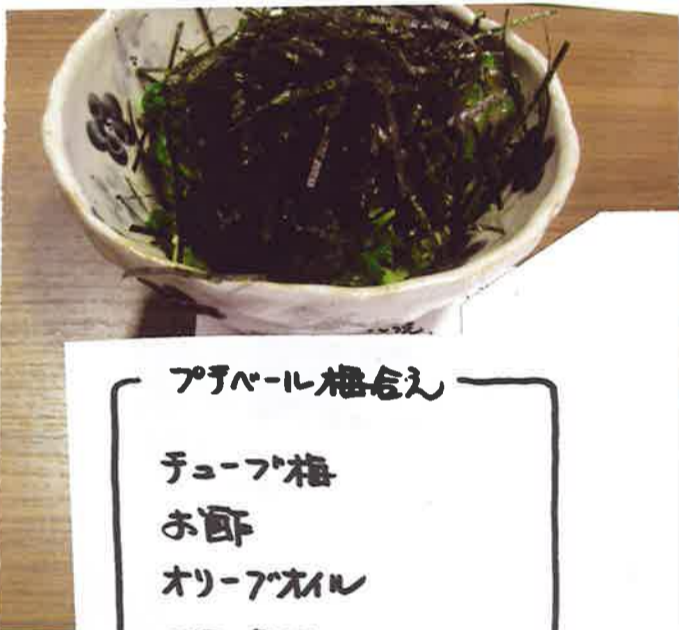 プチベール梅合え
チューブ梅
お酢
オリーブオイル